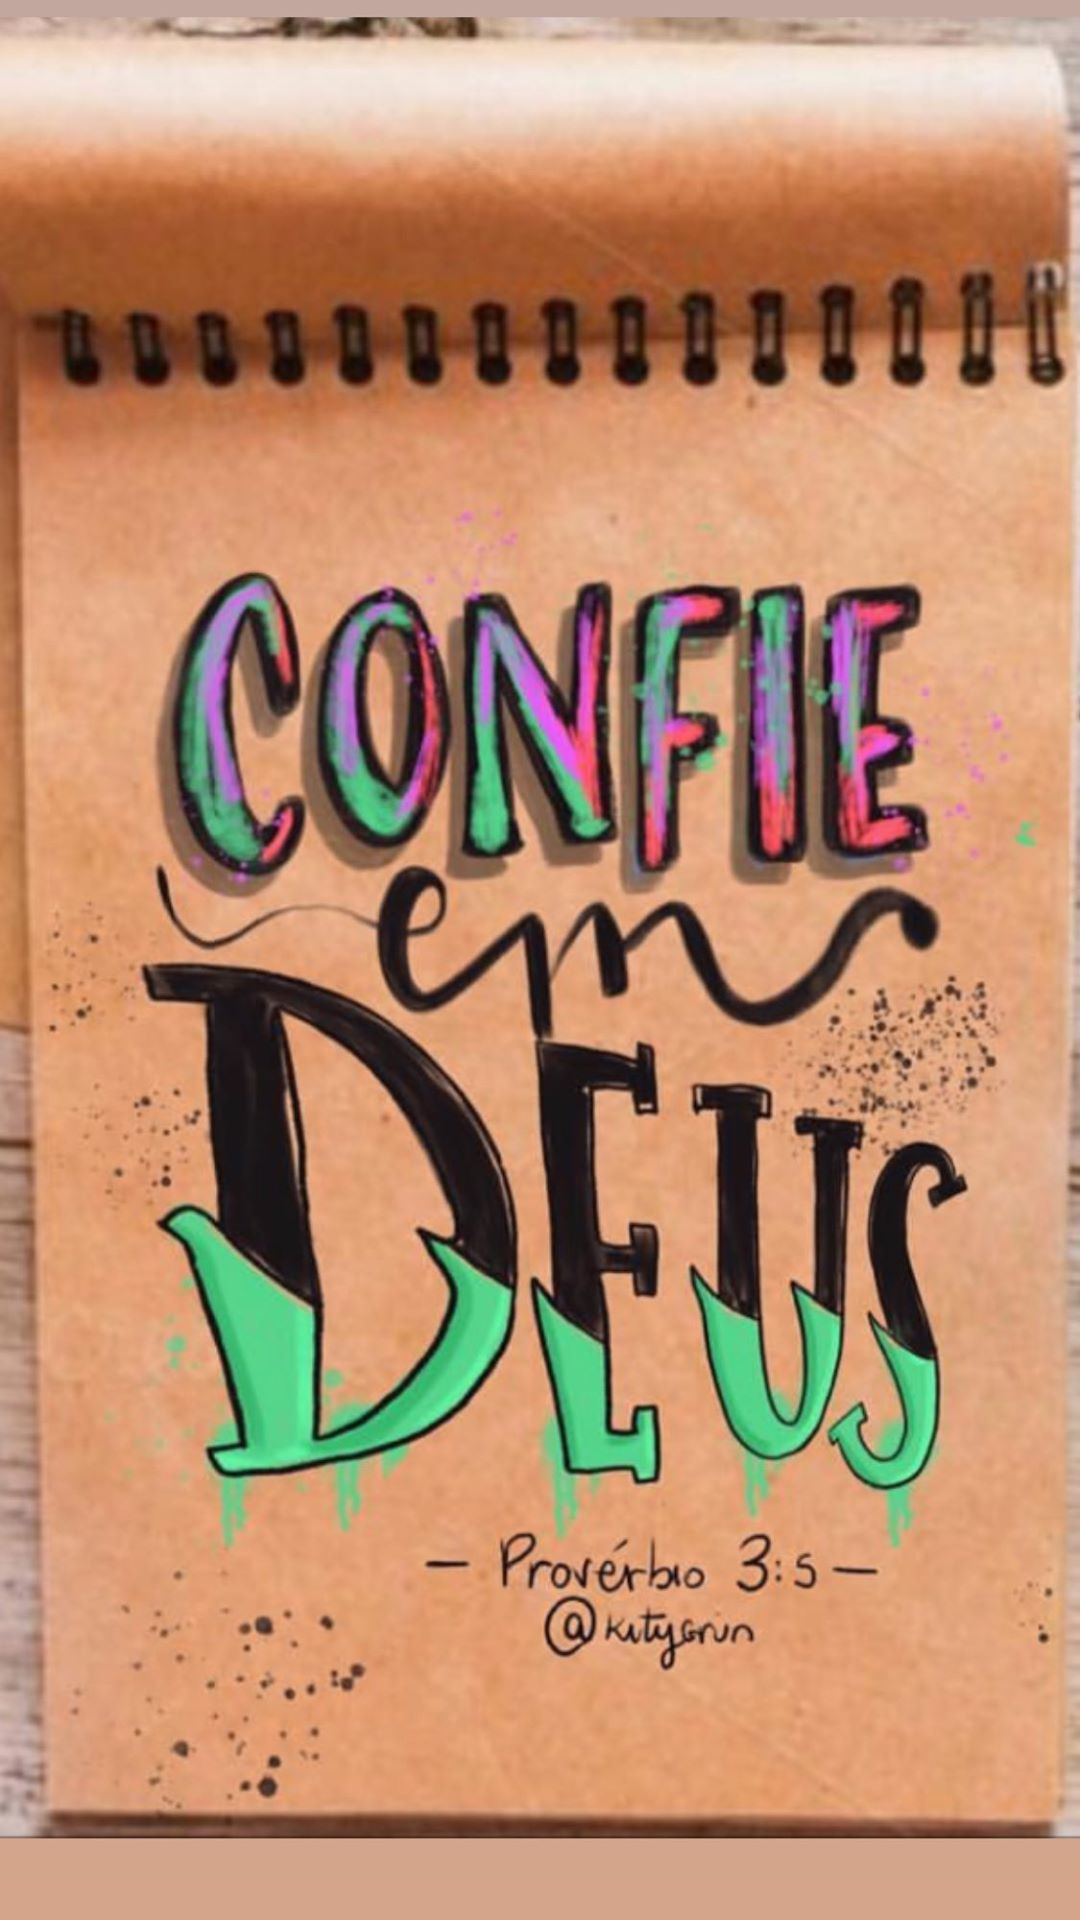 CONFIE
em
DEUS
— Provérbio 3:5 —
@kitygrun